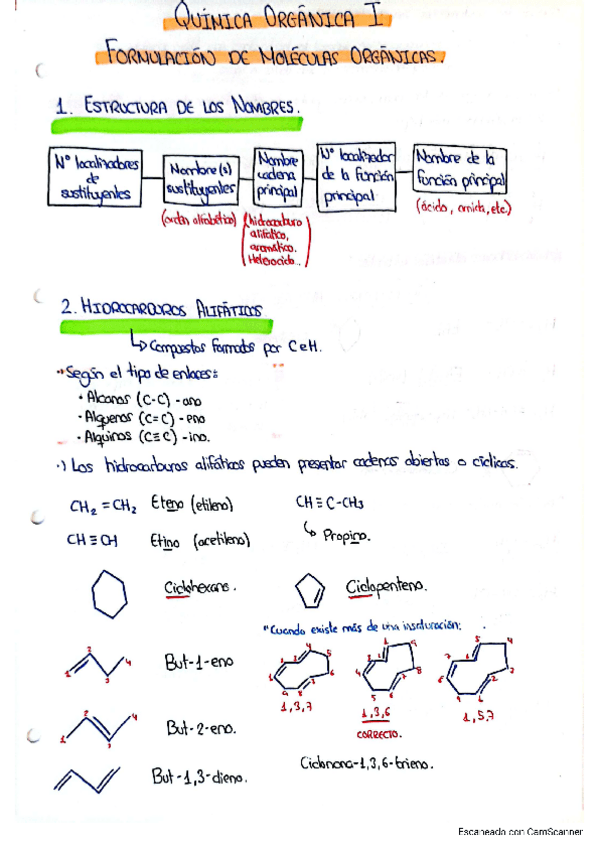 QUÍMICA ORGÁNICA I.
FORMULACIÓN DE MOLÉCULAS ORGÁNICAS.
1. ESTRUCTURA DE LOS NOMBRES.
Nº localizadores de sustituyentes
Nombre(s) sustituyentes
Nombre cadena principal
Nº localizador de la función principal
Nombre de la función principal
(orden alfabético)
(hidrocarburo alifático, aromático. Heterociclo..)
(ácido, amida, etc.)
2. HIDROCARBUROS ALIFÁTICOS
↳ Compuestos formados por C e H.
Según el tipo de enlaces:
· Alcanos (C-C) -ano
· Alquenos (C=C) -eno
· Alquinos (C≡C) -ino.
·) Los hidrocarburos alifáticos pueden presentar cadenas abiertas o cíclicas.
CH2 = CH2 Eteno (etileno)
CH ≡ C-CH3
CH ≡ CH Etino (acetileno)
↳ Propino.
Ciclohexano.
Ciclopenteno.
"Cuando existe más de una insaturación:
But-1-eno
1,3,7
1,3,6
CORRECTO.
1,5,7
But-2-eno.
Ciclonona-1,3,6-trieno.
But-1,3-dieno.
Escaneado con CamScanner